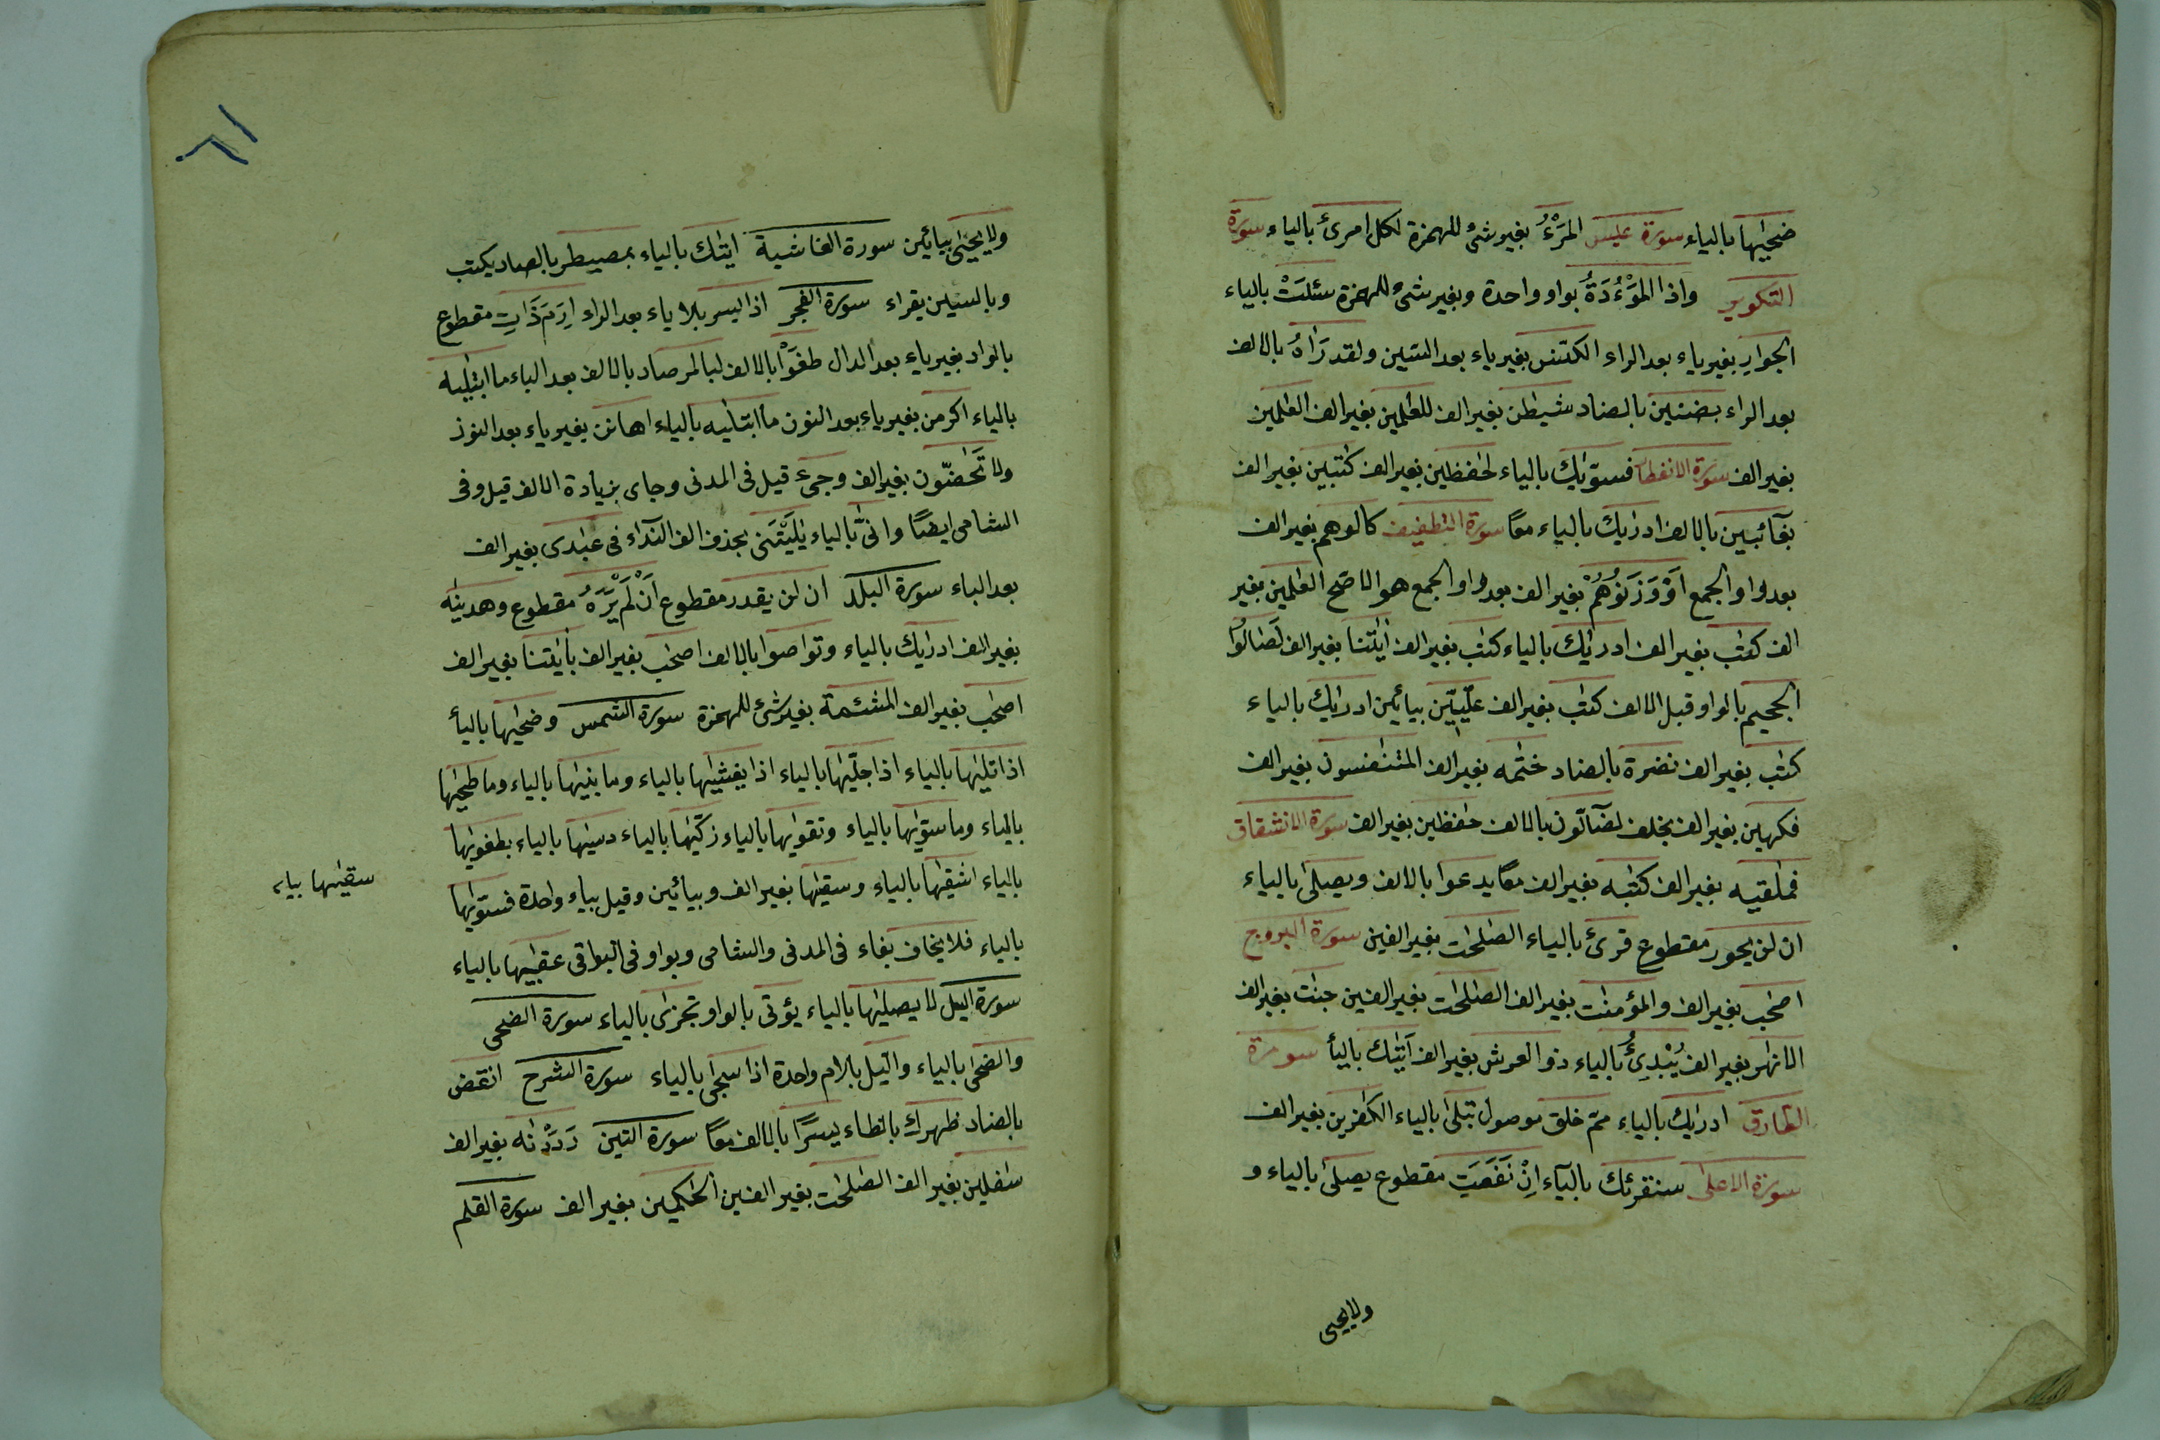 ضحيٰها بالياء سورة عبس المَرْءُ بغير شئ للهمزة لكل امرئ بالياء سورة
التكوير واذا المَوْءُدَةُ بواو واحدة وبغير شئ للهمزة سئلَتْ بالياء
الجوارِ بغير ياء بعد الراء الكنّس بغير ياء بعد السّين ولقد رَاٰهُ بالالف
بعد الراء بضنين بالضاد شيطٰن بغير الف للعٰلمين بغير الف العٰلمين
بغير الف سورة الانفطار فسوّيٰك بالياء لحٰفظين بغير الف كٰتبين بغير الف
بغآئبين بالالف ادريٰك بالياء معًا سورة التطفيف كالوهم بغير الف
بعد واو الجمع اَوْ وَزَنُوْهُمْ بغير الف بعد واو الجمع هو الاصّح العٰلمين بغير
الف كتٰب بغير الف ادريٰك بالياء كتٰب بغير الف اٰيٰتنا بغير الف لَصَالُوا
الجحيم بالواو قبل الالف كتٰب بغير الف علّيّين بيائين ادريٰك بالياء
كتٰب بغير الف نضرة بالضاد ختٰمه بغير الف المتنٰفسون بغير الف
فكهين بغير الف بخلف لضآلّون بالالف حٰفظين بغير الف سورة الانشقاق
فملٰقيه بغير الف كتٰبه بغير الف معًا يدعوا بالالف ويصلىٰ بالياء
ان لن يحور مقطوع قرئ بالياء الصّٰلحٰت بغير الفين سورة البروج
اصحٰب بغير الف والمؤمنٰت بغير الف الصّٰلحٰت بغير الفين جنّٰت بغير الف
الانهٰر بغير الف يُبْدِئُ بالياء ذو العرش بغير الف اَتيٰك بالياء سورة
الطّارق ادريٰك بالياء ممّ خلق موصول تبلىٰ بالياء الكٰفرين بغير الف
سورة الاعلىٰ سنقرئك بالياء اِنْ نَفَعَتِ مقطوع يصلىٰ بالياء و
ولا يحيى
٦١
ولا يحيىٰ بيائين سورة الغاشية اتيٰك بالياء بمصيطر بالصاد يكتب
وبالسين يقراء سورة الفجر اذا يسر بلا ياء بعد الراء اِرَمَ ذَاتِ مقطوع
بالواد بغير ياء بعد الدال طغَوْا بالالف لبالمرصاد بالالف بعد الباء ما ابتليٰه
بالياء اكرمن بغير ياء بعد النون ما ابتليٰه بالياء اهانن بغير ياء بعد النون
ولا تَحٰضّون بغير الف وجئ قيل فى المدنى وجاى بزيادة الالف قيل وفى
الشامى ايضًا وانّىٰ بالياء يٰلَيْتَنى بحذف الف النّداء فى عبٰدى بغير الف
بعد الباء سورة البلد ان لن يقدر مقطوع اَنْ لَمْ يَرَهُ مقطوع وهدينٰه
بغير الف ادريٰك بالياء وتواصوا بالالف اصحٰب بغير الف باٰيٰتنا بغير الف
اصحٰب بغير الف المشئمة بغير شئ للهمزة سورة الشمس وضحيٰها بالياء
اذا تليٰها بالياء اذا جلّيٰها بالياء اذا يغشيٰها بالياء وما بنيٰها بالياء وما طحيٰها
بالياء وما سوّيٰها بالياء وتقويٰها بالياء زكّيٰها بالياء دسيٰها بالياء بطغويٰها
بالياء اشقيٰها بالياء وسقيٰها بغير الف وبيائين وقيل بياء واحدة فسوّيٰها
سقيٰها بياء
بالياء فلا يخاف بفاء فى المدنى والشامى وبواو فى البواقى عقبيٰها بالياء
سورة اليل لا يصليٰها بالياء يؤتى بالواو تجزىٰ بالياء سورة الضحى
والضحىٰ بالياء والّيل بلام واحدة اذا سجىٰ بالياء سورة الشرح انقض
بالضاد ظهرك بالظاء يسرًا بالالف معًا سورة التين رَدَدْنٰه بغير الف
سٰفلين بغير الف الصّٰلحٰت بغير الفين الحٰكمين بغير الف سورة القلم